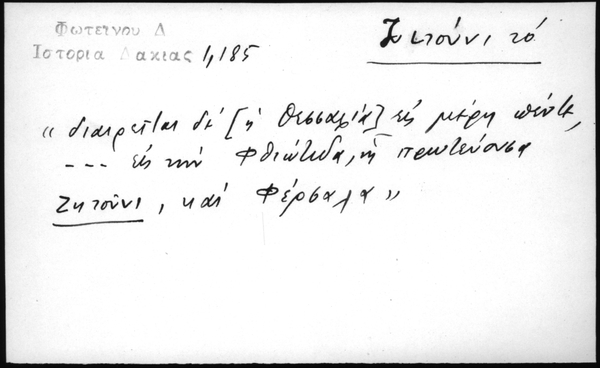 Φωτεινου Δ
Ιστορια Δακιας 1,185
Ζητούνι, τό
"διαιρεῖται δέ [ἡ Θεσσαλία] εἰς μέρη πέντε,
--- εἰς τήν Φθιώτιδα, ἧς πρωτεύουσα
Ζητοῦνι, καί Φέρσαλα"